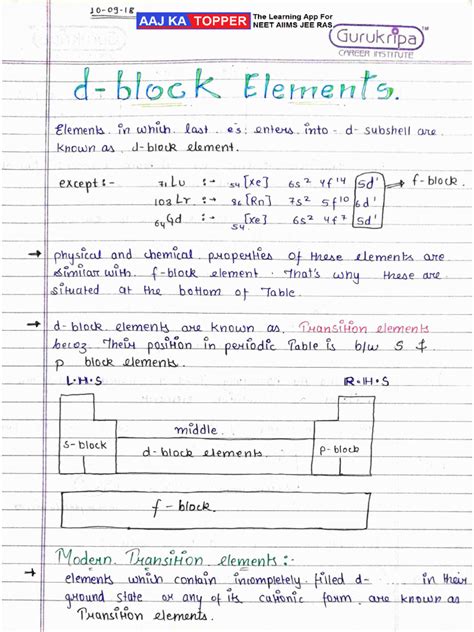 10-09-18
AAJ KA TOPPER
The Learning App For
NEET AIIMS JEE RAS
Gurukripa™
CAREER INSTITUTE
d-block Elements.
Elements in which last e⁻s enters into -d- subshell are
known as d-block element.
except :- ₇₁Lu :→ ₅₄[Xe] 6s² 4f¹⁴ 5d¹ → f-block.
₁₀₃Lr :→ ₈₆[Rn] 7s² 5f¹⁰ 6d¹
₆₄Gd :→ ₅₄[Xe] 6s² 4f⁷ 5d¹
→ physical and chemical properties of these elements are
similar with f-block element. that's why these are
situated at the bottom of Table.
→ d-block elements are known as Transition elements
becoz Their position in periodic Table is b/w S &
p block elements.
L·H·S R·H·S
middle.
s-block d-block elements p-block
f-block.
Modern Transition elements:-
→ elements which contain incompletely filled d- in their
ground state or any of its cationic form, are known as
Transition elements.